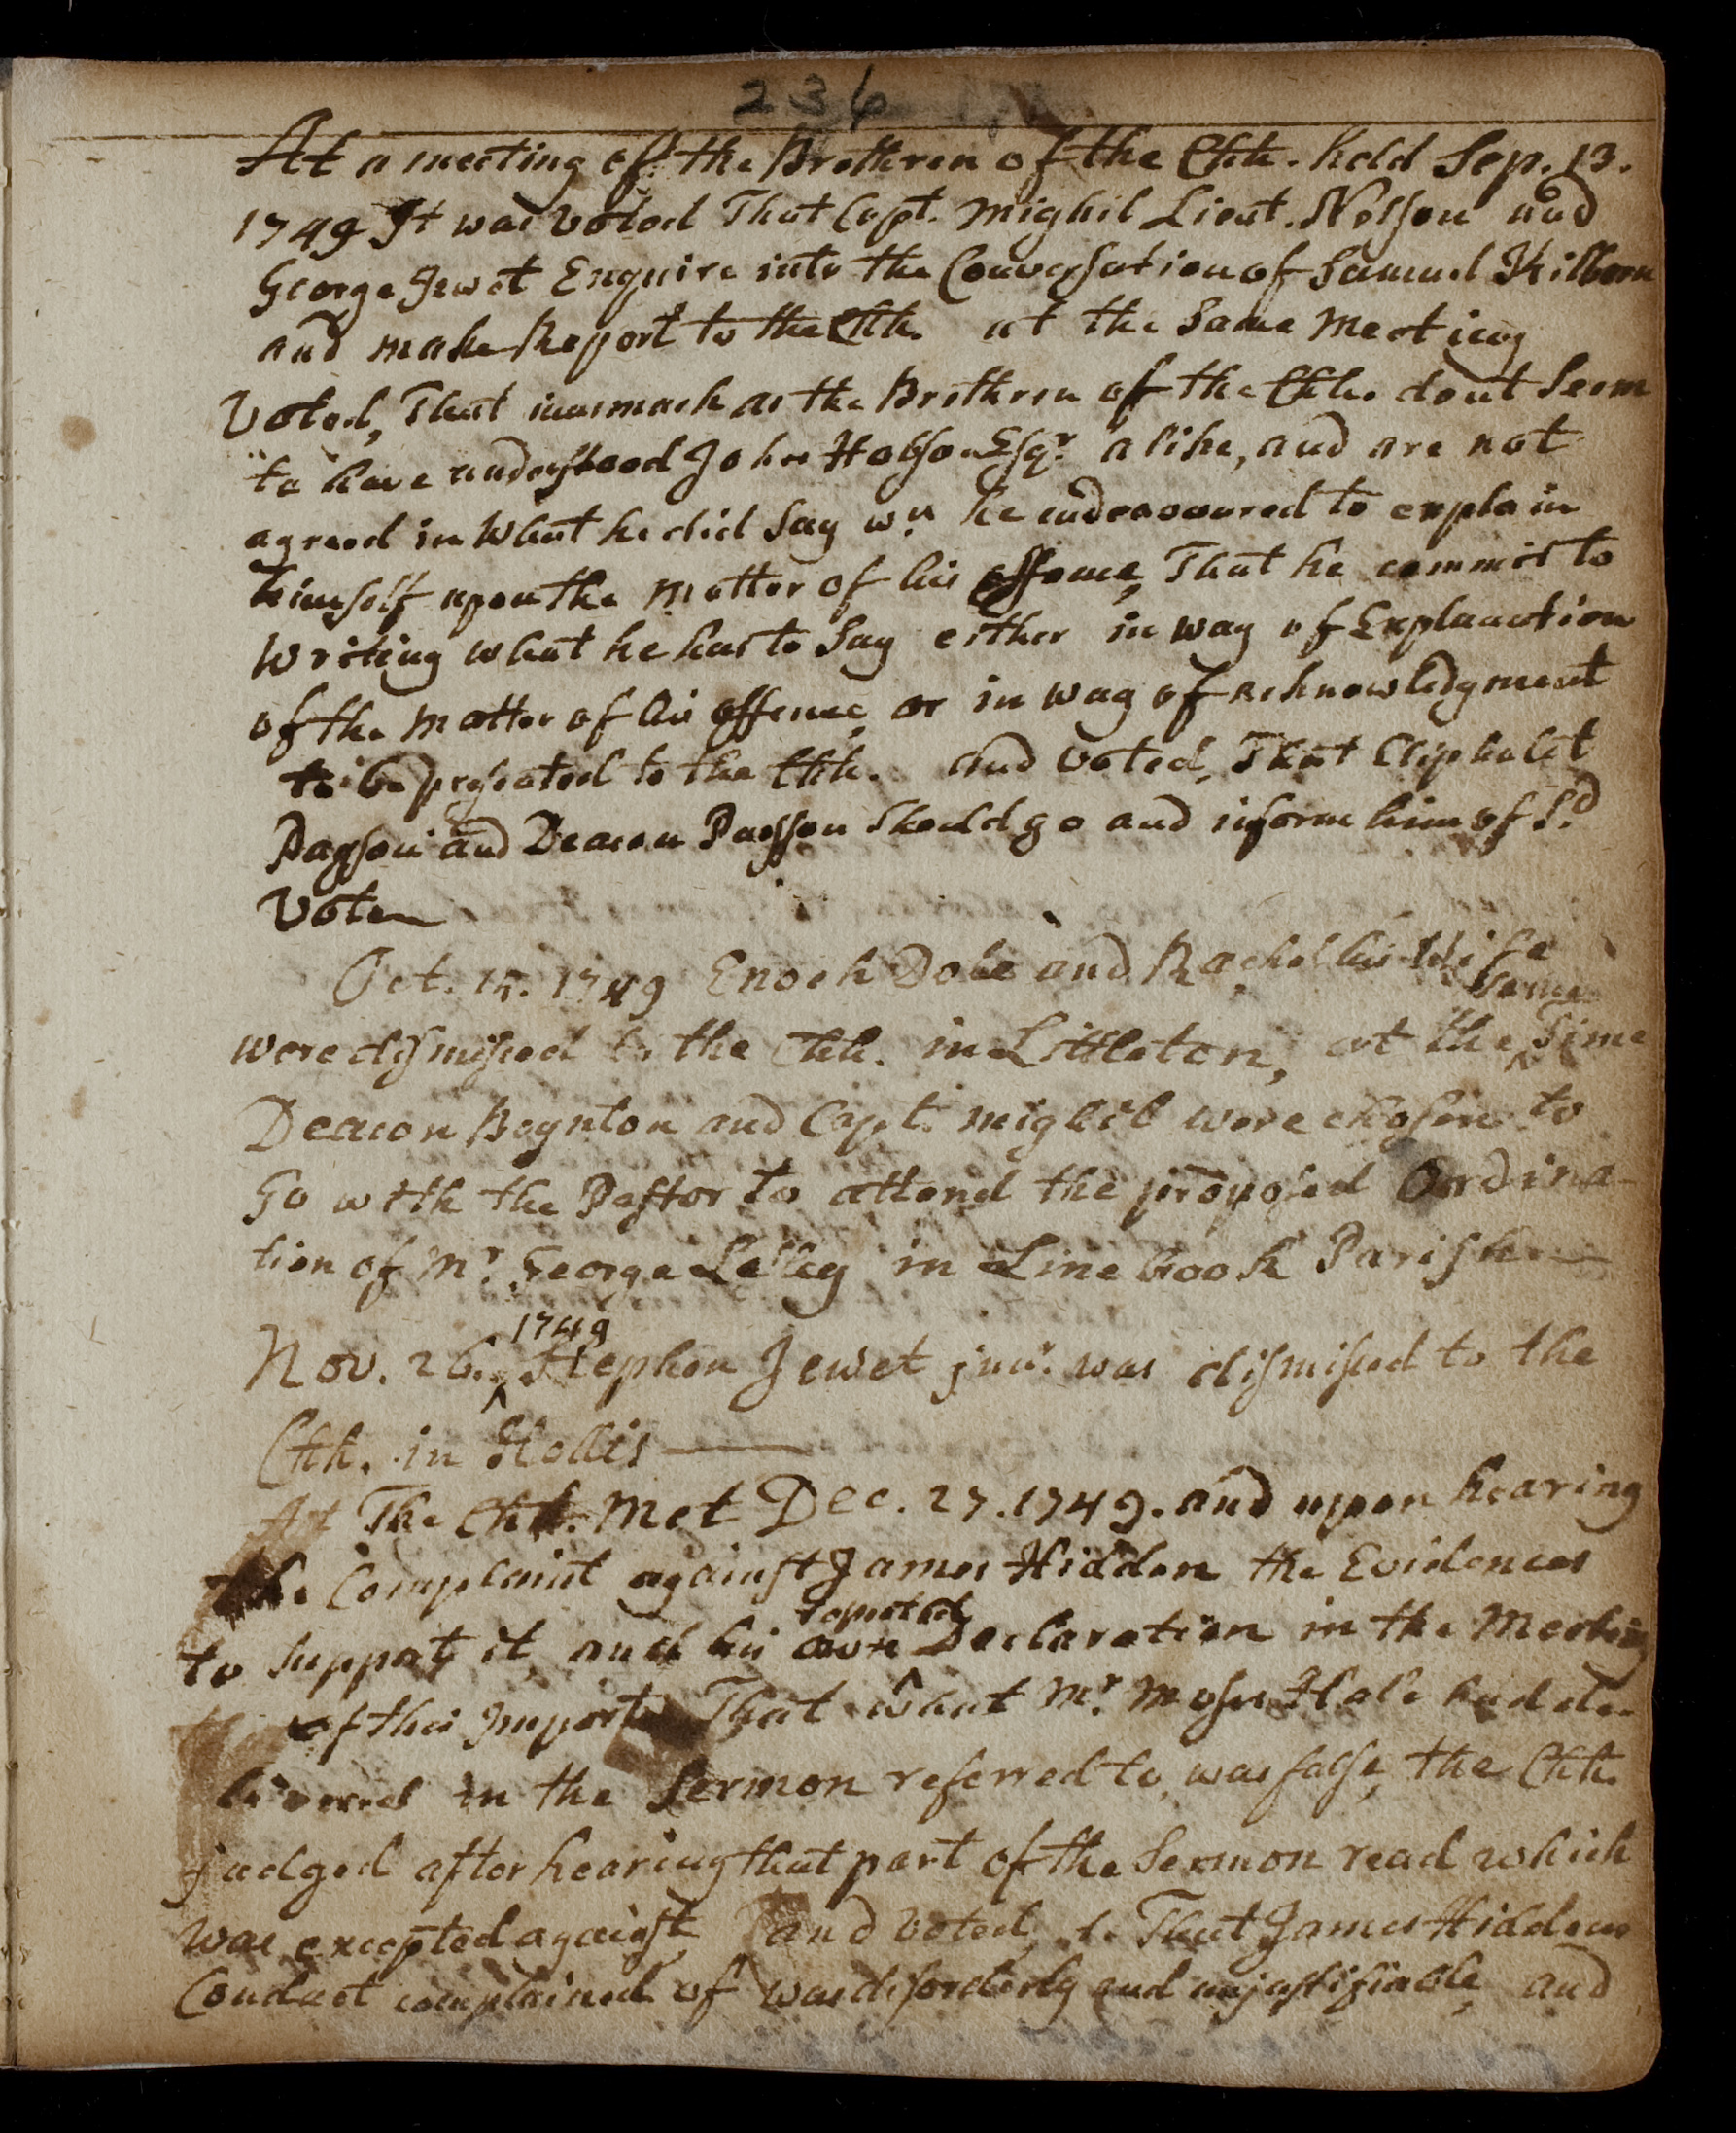 236
At a meeting of the Brethren of the Chh. held Sep. 13.
1749 It was Voted That Capt. Mighil Lieut. Nelson and
George Jewet Enquire into the Conversation of Samuel Kilborn
and make Report to the Chh. at the Same Meeting
Voted, That inasmuch as the Brethren of the Chh. dont Seem
to have understood John Hobson Esqr. alike, and are not
agreed in What he did Say wn. he endeavoured to explain
himself upon the Matter of his offence, That he commit to
Writing what he has to Say either in way of Explanation
of the Matter of his offence, or in way of acknowledgment
to be presented to the Chh. and Voted, That Eliphalet
Payson and Deacon Payson Should go and inform him of Sd.
Vote
Oct. 15. 1749 Enoch Dole and Rachel his Wife
same
were dismissed to the Chh. in Littleton, at the ^ time
Deacon Boynton and Capt. Mighil were chosen to
Go with the Pastor to attend the proposed Ordina-
tion of Mr. George Lesley in Linebrook Parish
1749
Nov. 26. ^ Stephen Jewet junr. was dismissed to the
Chh. in Hollis
At The Chh. Met Dec. 27. 1749. and upon hearing
the Complaint against James Hidden the Evidences
repeated
to support it, and his own ^ Declaration in the Meeting
of this Import That what Mr. Moses Hale had de-
livered in the Sermon referred to, was false, the Chh.
judged after hearing that part of the Sermon read which
was excepted against, and Voted, 1. That James Hiddens
Conduct complained of was disorderly and unjustifiable, and